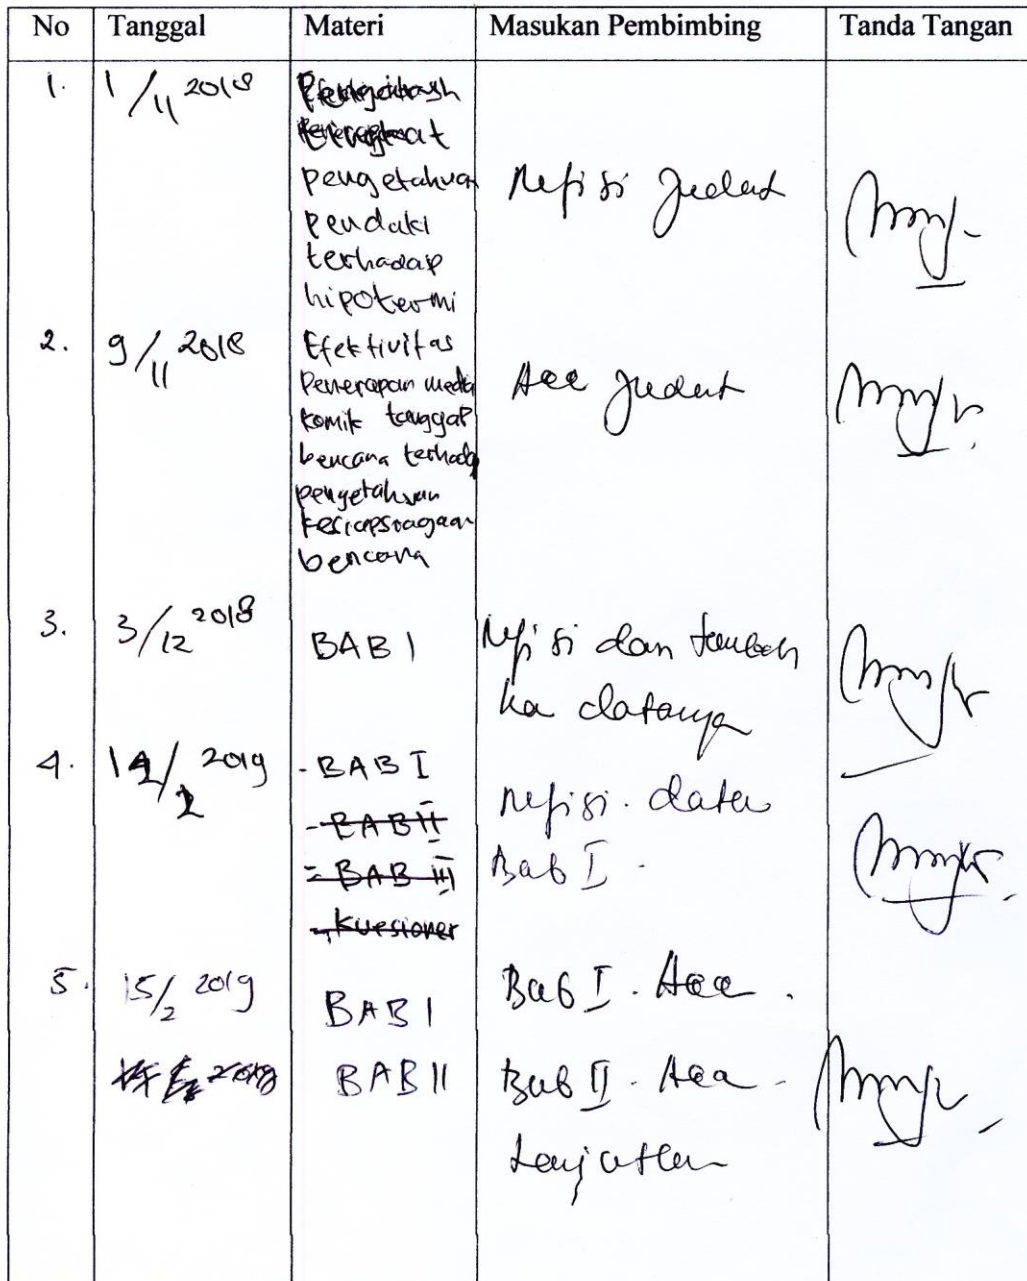 No Tanggal Materi Masukan Pembimbing Tanda Tangan
1. 1/11 2018
pengetahuan
pendaki
terhadap
hipotermi
Refisi Judul
2. 9/11 2018
Efektivitas
Penerapan media
komik tanggap
bencana terhadap
pengetahuan
kesiapsiagaan
bencana
Acc Judul
3. 3/12 2018 BAB I
Refisi dan tambah
ka datanya
4. 14/2 2019
- BAB I
- BAB II
- BAB III
- Kuesioner
Refisi. data
Bab I.
5. 15/2 2019
BAB I Bab I. Acc.
BAB II Bab II. Acc.
Lanjutkan